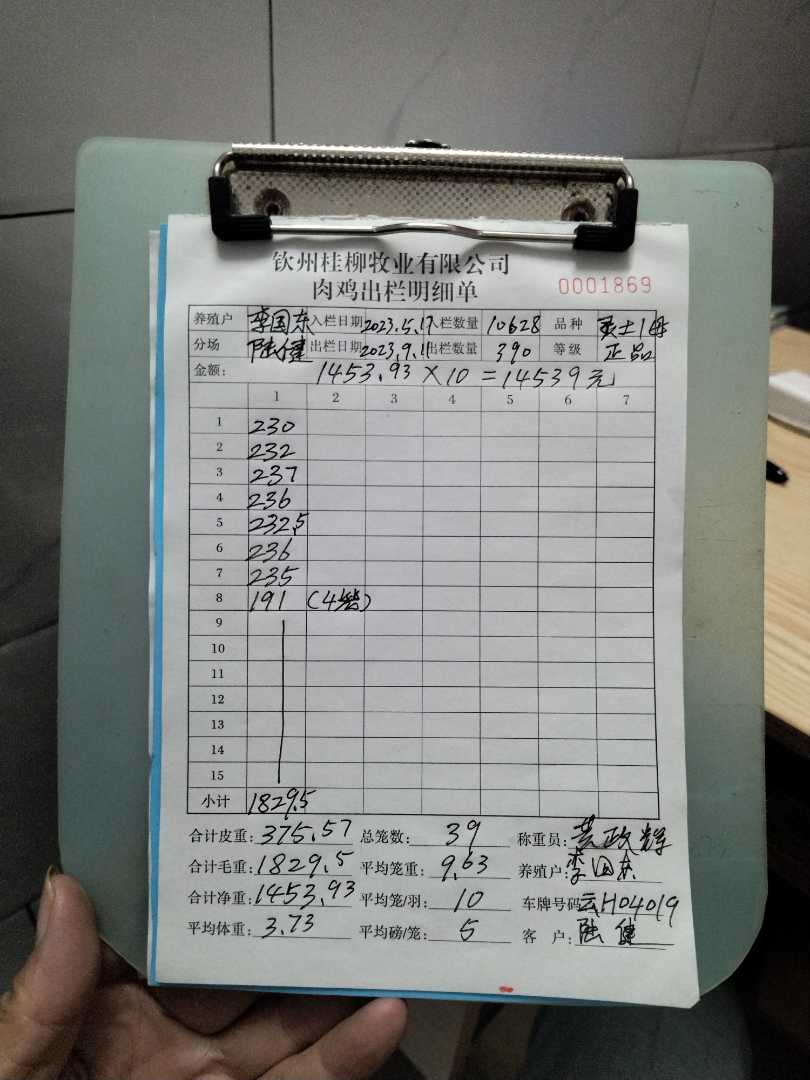 钦州桂柳牧业有限公司
肉鸡出栏明细单 0001869
养殖户 李国东 入栏日期 2023.5.17 入栏数量 10628 品种
分场 陆健 出栏日期 2023.9.11 出栏数量 390 等级 正品
金额: 1453.93 × 10 = 14539元
1 2 3 4 5 6 7
1 230
2 232
3 237
4 236
5 232.5
6 236
7 235
8 191 (4笼)
9
10
11
12
13
14
15
小计 1829.5
合计皮重: 375.57 总笼数: 39 称重员: 黄政辉
合计毛重: 1829.5 平均笼重: 9.63 养殖户: 李国东
合计净重: 1453.93 平均笼/羽: 10 车牌号码 云H04019
平均体重: 3.73 平均磅/笼: 5 客户: 陆健